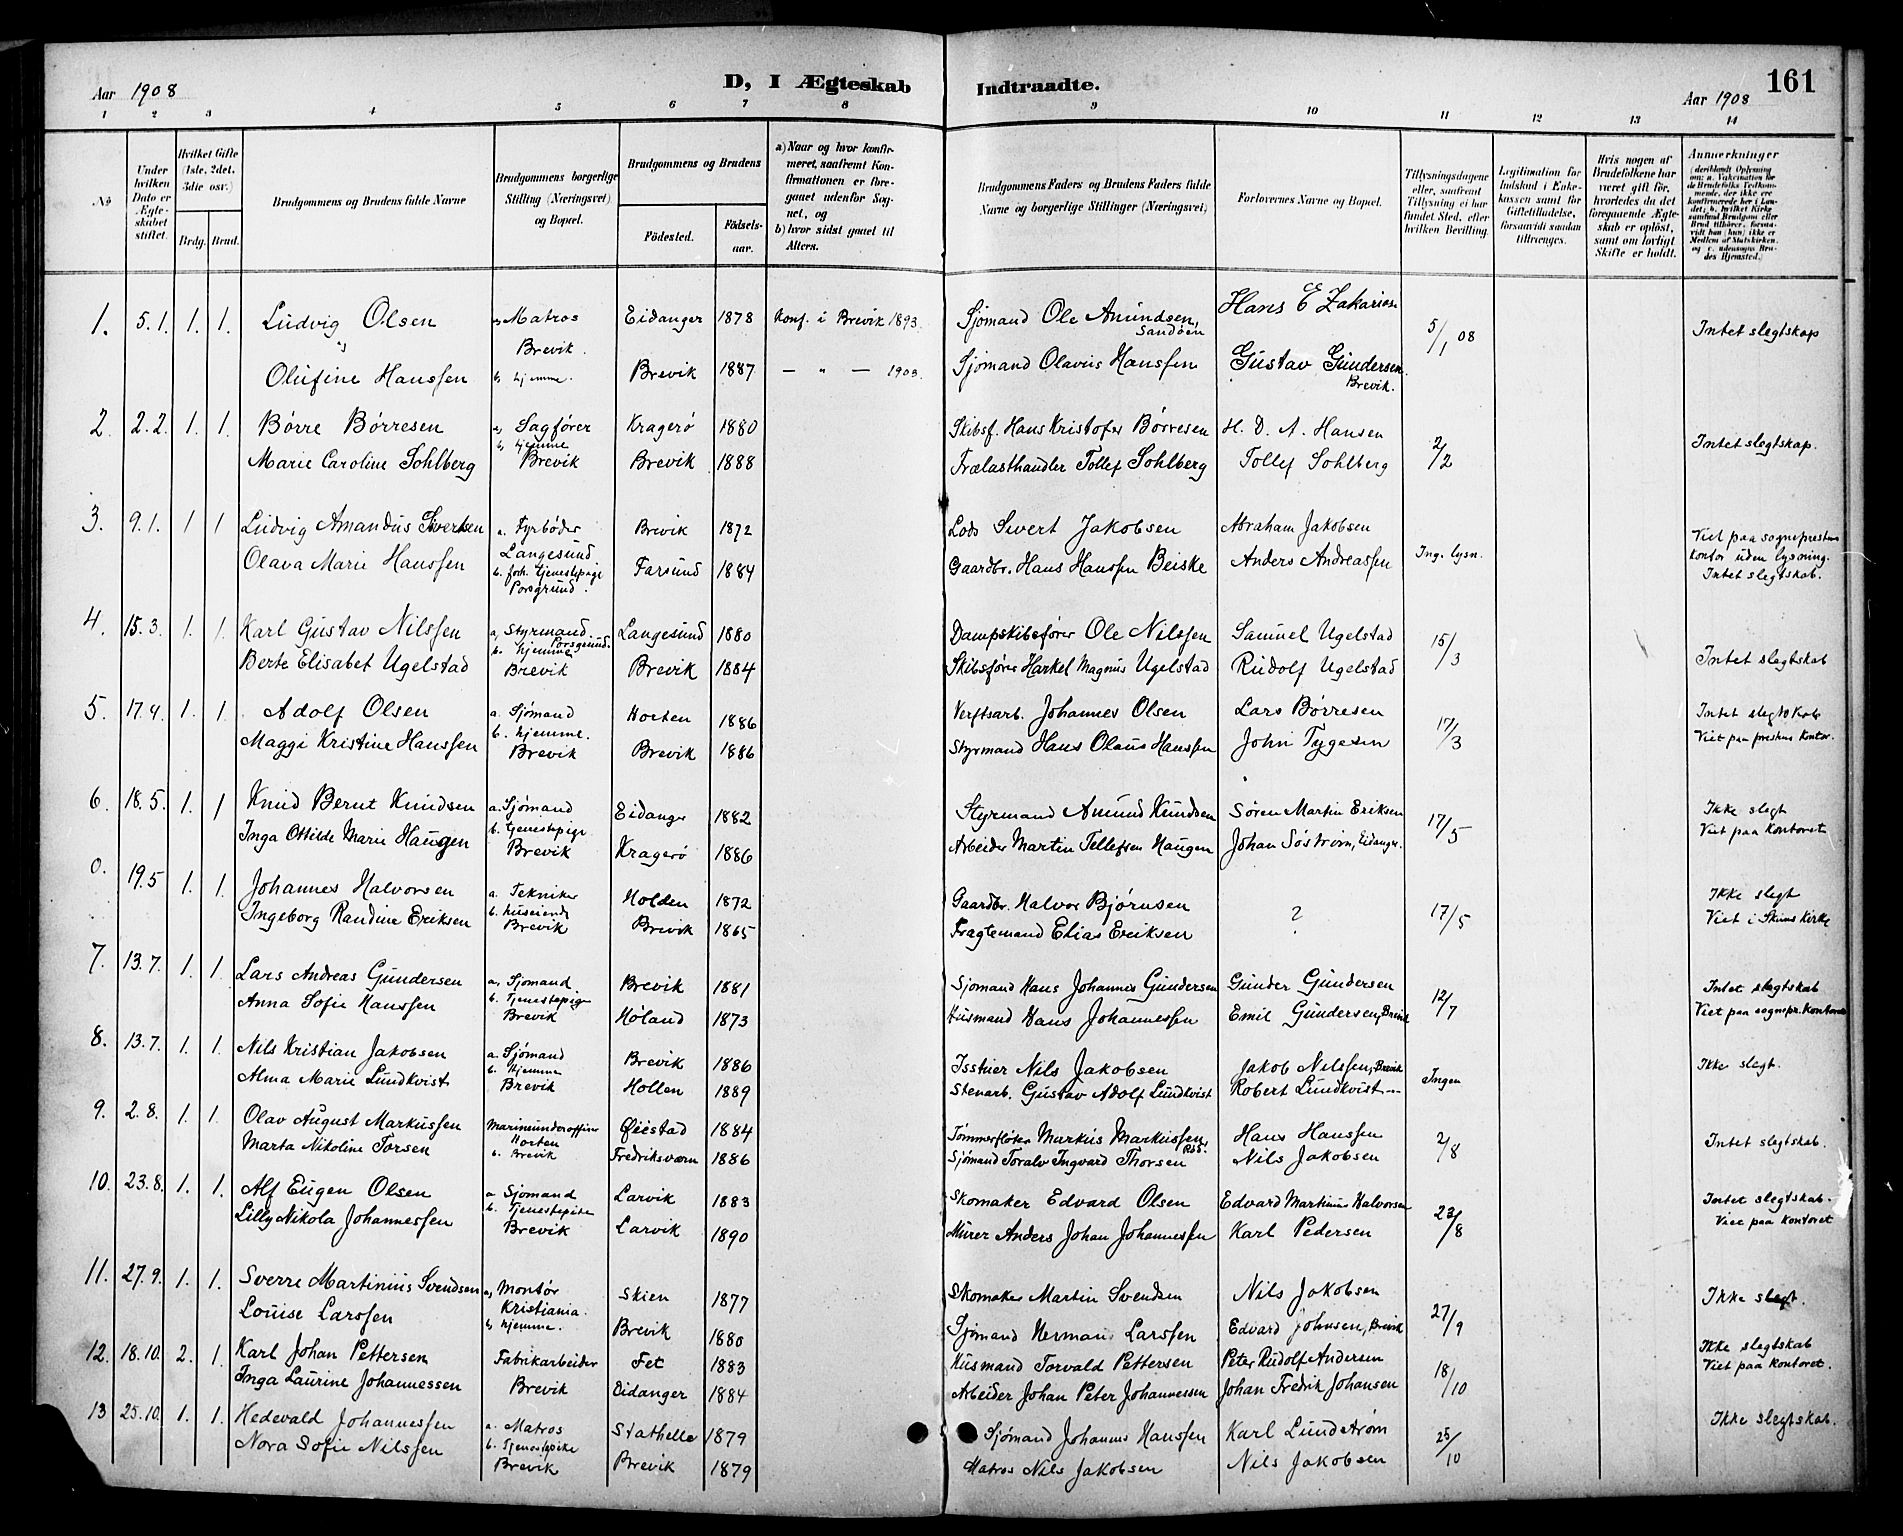 Aar 1908 D, I Ægteskab Indtraadte. Aar 1908 161
1 2 3 4 5 6 7 8 9 10 11 12 13 14
No
Under hvilken Dato er Ægteskabet stiftet.
Hvilket Gifte (1ste, 2det, 3die osv.)
Brdg. Brud.
Brudgommens og Brudens fulde Navne
Brudgommens borgerlige Stilling (Næringsvei) og Bopæl.
Brudgommens og Brudens
Fødested. Fødselsaar.
a) Naar og hvor konfirmeret, saafremt Konfirmationen er foregaaet udenfor Sognet, og
b) hvor sidst gaaet til Alters.
Brudgommens Faders og Brudens Faders fulde Navne og borgerlige Stillinger (Næringsvei)
Forlovernes Navne og Bopæl.
Tillysningsdagene eller, saafremt Tillysning ei har fundet Sted, efter hvilken Bevilling.
Legitimation for Indskud i Enkekassen samt for Giftetilladelse, forsaavidt saadan tiltrænges.
Hvis nogen af Brudefolkene har været gift før, hvorledes da det foregaaende Ægteskab er opløst, samt om lovligt Skifte er holdt.
Anmerkninger (deriblandt Oplysning om: a. Vakcination for de Brudefolks Vedkommende, der ikke ere konfirmerede her i Landet; b. hvilket Kirkesamfund Brudgom eller Brud tilhører, forsaavidt han (hun) ikke er Medlem af Statskirken, og c. udensogns Brudes Hjemsted.)
1. 5.1. 1. 1. Ludvig Olsen a, Matros Eidanger 1878 Konf. i Brevik 1893. Sjømand Ole Amundsen, Sandøen Hans E Zakarias 5/1 08 Intet slegtskap
Brevik
Olufine Hanssen b, hjemme. Brevik 1887 — " — 1903. Sjømand Olavus Hanssen Gustav Gundersen Brevik.
2. 2.2. 1. 1. Børre Børresen a, Sagfører Kragerø 1880 Skibsf. Hans Kristofer Børresen H. D. A. Hansen 2/2 Intet slegtskap.
b, hjemme
Marie Caroline Sohlberg Brevik Brevik 1888 Trælasthandler Tollef Sohlberg Tollef Sohlberg
3. 9.1. 1 1 Ludvig Amandus Sivertsen a. Fyrbøder Brevik 1872 Lods Sivert Jakobsen Abraham Jakobsen Ing. lysn. Viet paa sogneprestens kontor uden lysning.
Langesund
Olava Marie Hanssen b. forh. tjenestepige Farsund 1884 Gaardbr. Hans Hanssen Beiske Anders Andreassen Intet slegtskab.
Porsgrund.
4. 15.3. 1. 1. Karl Gustav Nilssen a, Styrmand. Porsgrund. Langesund 1880 Dampskibsfører Ole Nilssen Samuel Ugelstad 15/3
b. hjemme
Berte Elisabet Ugelstad Brevik Brevik 1884 Skibsfører Harkel Magnus Ugelstad Rudolf Ugelstad Intet slegtskab
5. 17.4. 1. 1. Adolf Olsen a. Sjømand Horten 1886 Verftsarb. Johannes Olsen Lars Børresen 17/3 Intet slegtskab
b. hjemme.
Maggi Kristine Hanssen Brevik Brevik 1886 Styrmand Hans Olaus Hanssen John Tygesen Viet paa prestens kontor.
6. 18.5. 1. 1 Knud Bernt Knudsen a. Sjømand Eidanger 1882 Styrmand Amund Knudsen Søren Martin Eriksen 17/5 Ikke slegt
b. tjenestepige
Inga Ottilde Marie Haugen Brevik Kragerø 1886 Arbeider Martin Tellefsen Haugen Johan Søstrøm, Eidanger. Viet paa kontoret
0. 19.5 1. 1. Johannes Halvorsen a. Tekniker Holden 1872 Gaardbr. Halvor Bjørnsen ? 17/5 Ikke slegt
b. huseiende
Ingeborg Randine Eriksen Brevik Brevik 1865 Fragtemand Elias Eriksen Viet i Skiens Kirke
7. 13.7. 1. 1. Lars Andreas Gundersen a, Sjømand. Brevik 1881 Sjømand Hans Johannes Gundersen Gunder Gundersen 12/7 Intet slegtskab
b. Tjenestepige
Anna Sofie Hanssen Brevik Høland 1873 Husmand Hans Johannessen Emil Gundersen, Brevik Viet paa sognepr. kontoret
8. 13.7. 1. 1. Nils Kristian Jakobsen a. Sjømand Brevik 1886 Isstuer Nils Jakobsen Jakob Nilssen, Brevik Ingen Ikke slegt.
b. hjemme
Alma Marie Lundkvist Brevik Hollen 1889 Stenarb. Gustav Adolf Lundkvist Robert Lundkvist —
9. 2.8. 1. 1. Olav August Markussen Marineunderofficer Horten Øiestad 1884 Tømmerfløter Markus Markussen Hans Hanssen 2/8 Intet slegtskab.
Marta Nikoline Torsen b. Brevik Fredriksværn 1886 Sjømand Toralv Ingvard Thorsen Nils Jakobsen
10. 23.8. 1. 1. Alf Eugen Olsen a Sjømand Larvik 1883 Skomaker Edvard Olsen Edvard Martinius Halvorsen 23/8 Intet slegtskab.
b. Tjenestepike
Lilly Nikola Johannessen Brevik Larvik 1890 Murer Anders Johan Johannessen Karl Pedersen Viet paa kontoret
11. 27.9. 1. 1. Sverre Martinius Svendsen a, Montør Kristiania. Skien 1877 Skomaker Martin Svendsen Nils Jakobsen 27/9 Ikke slegt.
Louise Larssen b, hjemme. Brevik 1880 Sjømand Herman Larssen Edvard Johnsen, Brevik
12. 18.10. 2. 1. Karl Johan Pettersen Fabrikarbeider Fet 1883 Husmand Torvald Pettersen Peter Rudolf Andersen 18/10 Ikke slegtskab
Inga Laurine Johannessen Brevik Eidanger 1884 Arbeider Johan Peter Johannessen Johan Fredrik Johansen Viet paa kontoret.
13 25.10. 1. 1. Hedevald Johannessen a. Matros Stathelle 1879 Sjømand Johannes Hanssen Karl Lundstrøm 25/10 Ikke slegtskab.
b. Tjenestepike
Nora Sofie Nilssen Brevik Brevik 1879 Matros Nils Jakobsen Nils Jakobsen